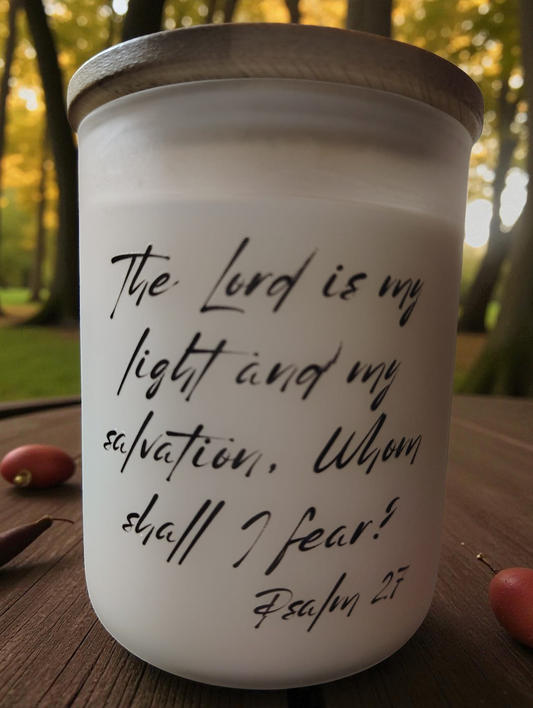 The Lord is my
light and my
salvation. Whom
shall I fear?
Psalm 27